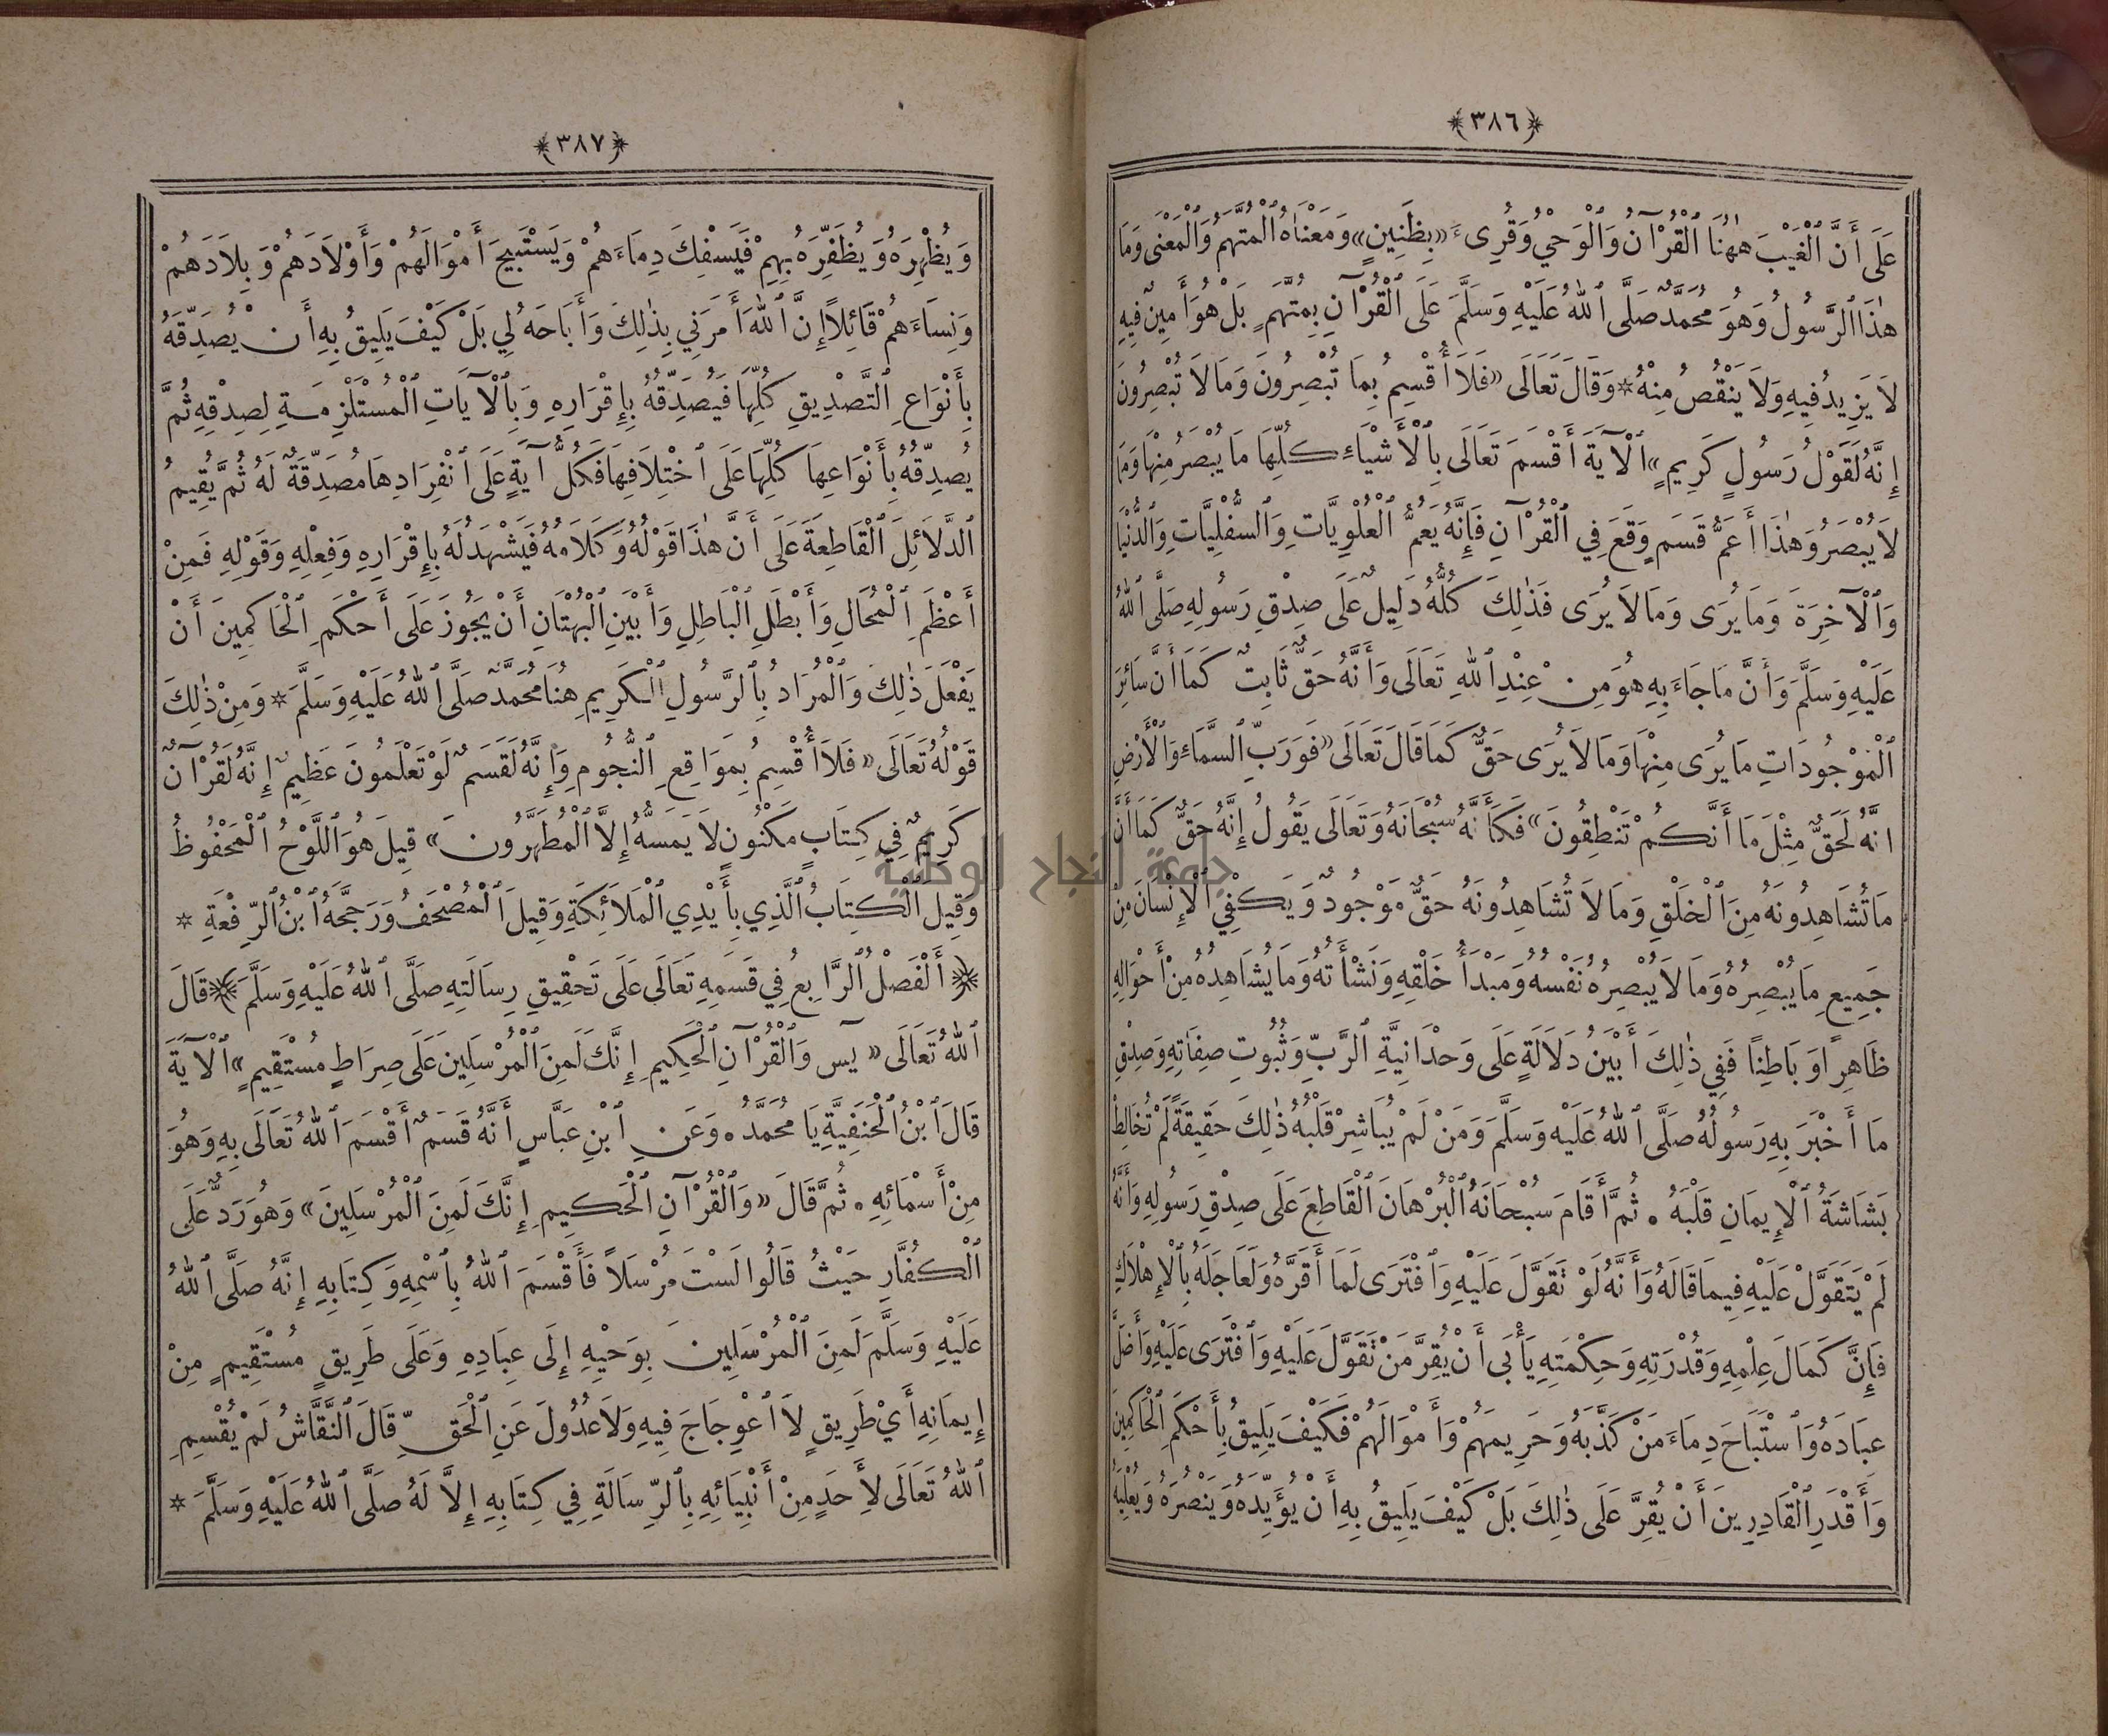 ﴿٣٨٦﴾
عَلَى أَنَّ ٱلْغَيْبَ هٰهُنَا ٱلْقُرْآنُ وَٱلْوَحْيُ وَقُرِئَ «بِظَنِينٍ» وَمَعْنَاهُ ٱلْمُتَّهَمُ وَٱلْمَعْنَى وَمَا
هٰذَا ٱلرَّسُولُ وَهُوَ مُحَمَّدٌ صَلَّى ٱللهُ عَلَيْهِ وَسَلَّمَ عَلَى ٱلْقُرْآنِ بِمُتَّهَمٍ بَلْ هُوَ أَمِينٌ فِيهِ
لاَ يَزِيدُ فِيهِ وَلاَ يَنْقُصُ مِنْهُ * وَقَالَ تَعَالَى «فَلاَ أُقْسِمُ بِمَا تُبْصِرُونَ وَمَا لاَ تُبْصِرُونَ
إِنَّهُ لَقَوْلُ رَسُولٍ كَرِيمٍ» ٱلْآيَةَ أَقْسَمَ تَعَالَى بِٱلْأَشْيَاءِ كُلِّهَا مَا يُبْصَرُ مِنْهَا وَمَا
لاَ يُبْصَرُ وَهٰذَا أَعَمُّ قَسَمٍ وَقَعَ فِي ٱلْقُرْآنِ فَإِنَّهُ يَعُمُّ ٱلْعُلْوِيَّاتِ وَٱلسُّفْلِيَّاتِ وَٱلدُّنْيَا
وَٱلْآخِرَةَ وَمَا يُرَى وَمَا لاَ يُرَى فَذٰلِكَ كُلُّهُ دَلِيلٌ عَلَى صِدْقِ رَسُولِهِ صَلَّى ٱللهُ
عَلَيْهِ وَسَلَّمَ وَأَنَّ مَا جَاءَ بِهِ هُوَ مِنْ عِنْدِ ٱللهِ تَعَالَى وَأَنَّهُ حَقٌّ ثَابِتٌ كَمَا أَنَّ سَائِرَ
ٱلْمَوْجُودَاتِ مَا يُرَى مِنْهَا وَمَا لاَ يُرَى حَقٌّ كَمَا قَالَ تَعَالَى «فَوَرَبِّ ٱلسَّمَاءِ وَٱلْأَرْضِ
انَّهُ لَحَقٌّ مِثْلَ مَا أَنَّكُمْ تَنْطِقُونَ» فَكَأَنَّهُ سُبْحَانَهُ وَتَعَالَى يَقُولُ إِنَّهُ حَقٌّ كَمَا أَنَّ
مَا تُشَاهِدُونَهُ مِنَ ٱلْخَلْقِ وَمَا لاَ تُشَاهِدُونَهُ حَقٌّ مَوْجُودٌ وَيَكْفِي ٱلْإِنْسَانَ مِنْ
جَمِيعِ مَا يُبْصِرُهُ وَمَا لاَ يُبْصِرُهُ نَفْسُهُ وَمَبْدَأُ خَلْقِهِ وَنَشْأَتُهُ وَمَا يُشَاهِدُهُ مِنْ أَحْوَالِهِ
ظَاهِرًا وَبَاطِنًا فَفِي ذٰلِكَ أَبْيَنُ دَلاَلَةٍ عَلَى وَحْدَانِيَّةِ ٱلرَّبِّ وَثُبُوتِ صِفَاتِهِ وَصِدْقِ
مَا أَخْبَرَ بِهِ رَسُولُهُ صَلَّى ٱللهُ عَلَيْهِ وَسَلَّمَ وَمَنْ لَمْ يُبَاشِرْ قَلْبُهُ ذٰلِكَ حَقِيقَةً لَمْ تُخَالِطْ
بَشَاشَةُ ٱلْإِيمَانِ قَلْبَهُ • ثُمَّ أَقَامَ سُبْحَانَهُ ٱلْبُرْهَانَ ٱلْقَاطِعَ عَلَى صِدْقِ رَسُولِهِ وَأَنَّهُ
لَمْ يَتَقَوَّلْ عَلَيْهِ فِيمَا قَالَهُ وَأَنَّهُ لَوْ تَقَوَّلَ عَلَيْهِ وَٱفْتَرَى لَمَا أَقَرَّهُ وَلَعَاجَلَهُ بِٱلْإِهْلاَكِ
فَإِنَّ كَمَالَ عِلْمِهِ وَقُدْرَتِهِ وَحِكْمَتِهِ يَأْبَى أَنْ يُقِرَّ مَنْ تَقَوَّلَ عَلَيْهِ وَٱفْتَرَى عَلَيْهِ وَأَضَلَّ
عِبَادَهُ وَٱسْتَبَاحَ دِمَاءَ مَنْ كَذَّبَهُ وَحَرِيمَهُمْ وَأَمْوَالَهُمْ فَكَيْفَ يَلِيقُ بِأَحْكَمِ ٱلْحَاكِمِينَ
وَأَقْدَرِ ٱلْقَادِرِينَ أَنْ يُقِرَّ عَلَى ذٰلِكَ بَلْ كَيْفَ يَلِيقُ بِهِ أَنْ يُؤَيِّدَهُ وَيَنْصُرَهُ وَيُعْلِيَهُ
﴿٣٨٧﴾
وَيُظْهِرَهُ وَيُظَفِّرَهُ بِهِمْ فَيَسْفِكَ دِمَاءَهُمْ وَيَسْتَبِيحَ أَمْوَالَهُمْ وَأَوْلاَدَهُمْ وَبِلاَدَهُمْ
وَنِسَاءَهُمْ قَائِلاً إِنَّ ٱللهَ أَمَرَنِي بِذٰلِكَ وَأَبَاحَهُ لِي بَلْ كَيْفَ يَلِيقُ بِهِ أَنْ يُصَدِّقَهُ
بِأَنْوَاعِ ٱلتَّصْدِيقِ كُلِّهَا فَيُصَدِّقُهُ بِإِقْرَارِهِ وَبِٱلْآيَاتِ ٱلْمُسْتَلْزِمَةِ لِصِدْقِهِ ثُمَّ
يُصَدِّقُهُ بِأَنْوَاعِهَا كُلِّهَا عَلَى ٱخْتِلاَفِهَا فَكُلُّ آيَةٍ عَلَى ٱنْفِرَادِهَا مُصَدِّقَةٌ لَهُ ثُمَّ يُقِيمُ
ٱلدَّلاَئِلَ ٱلْقَاطِعَةَ عَلَى أَنَّ هٰذَا قَوْلُهُ وَكَلاَمُهُ فَيَشْهَدُ لَهُ بِإِقْرَارِهِ وَفِعْلِهِ وَقَوْلِهِ فَمِنْ
أَعْظَمِ ٱلْمُحَالِ وَأَبْطَلِ ٱلْبَاطِلِ وَأَبْيَنِ ٱلْبُهْتَانِ أَنْ يَجُوزَ عَلَى أَحْكَمِ ٱلْحَاكِمِينَ أَنْ
يَفْعَلَ ذٰلِكَ وَٱلْمُرَادُ بِٱلرَّسُولِ ٱلْكَرِيمِ هُنَا مُحَمَّدٌ صَلَّى ٱللهُ عَلَيْهِ وَسَلَّمَ * وَمِنْ ذٰلِكَ
قَوْلُهُ تَعَالَى «فَلاَ أُقْسِمُ بِمَوَاقِعِ ٱلنُّجُومِ وَإِنَّهُ لَقَسَمٌ لَوْ تَعْلَمُونَ عَظِيمٌ إِنَّهُ لَقُرْآنٌ
كَرِيمٌ فِي كِتَابٍ مَكْنُونٍ لاَ يَمَسُّهُ إِلاَّ ٱلْمُطَهَّرُونَ» قِيلَ هُوَ ٱللَّوْحُ ٱلْمَحْفُوظُ
وَقِيلَ ٱلْكِتَابُ ٱلَّذِي بِأَيْدِي ٱلْمَلاَئِكَةِ وَقِيلَ ٱلْمُصْحَفُ وَرَجَّحَهُ ٱبْنُ ٱلرِّفْعَةِ *
﴿أَلْفَصْلُ ٱلرَّابِعُ فِي قَسَمِهِ تَعَالَى عَلَى تَحْقِيقِ رِسَالَتِهِ صَلَّى ٱللهُ عَلَيْهِ وَسَلَّمَ﴾ قَالَ
ٱللهُ تَعَالَى «يٓس وَٱلْقُرْآنِ ٱلْحَكِيمِ إِنَّكَ لَمِنَ ٱلْمُرْسَلِينَ عَلَى صِرَاطٍ مُسْتَقِيمٍ» ٱلْآيَةَ
قَالَ ٱبْنُ ٱلْحَنَفِيَّةِ يَا مُحَمَّدُ • وَعَنِ ٱبْنِ عَبَّاسٍ أَنَّهُ قَسَمٌ أَقْسَمَ ٱللهُ تَعَالَى بِهِ وَهُوَ
مِنْ أَسْمَائِهِ • ثُمَّ قَالَ «وَٱلْقُرْآنِ ٱلْحَكِيمِ إِنَّكَ لَمِنَ ٱلْمُرْسَلِينَ» وَهُوَ رَدٌّ عَلَى
ٱلْكُفَّارِ حَيْثُ قَالُوا لَسْتَ مُرْسَلاً فَأَقْسَمَ ٱللهُ بِٱسْمِهِ وَكِتَابِهِ إِنَّهُ صَلَّى ٱللهُ
عَلَيْهِ وَسَلَّمَ لَمِنَ ٱلْمُرْسَلِينَ بِوَحْيِهِ إِلَى عِبَادِهِ وَعَلَى طَرِيقٍ مُسْتَقِيمٍ مِنْ
إِيمَانِهِ أَيْ طَرِيقٍ لاَ ٱعْوِجَاجَ فِيهِ وَلاَ عُدُولَ عَنِ ٱلْحَقِّ قَالَ ٱلنَّقَّاشُ لَمْ يُقْسِمِ
ٱللهُ تَعَالَى لِأَحَدٍ مِنْ أَنْبِيَائِهِ بِٱلرِّسَالَةِ فِي كِتَابِهِ إِلاَّ لَهُ صَلَّى ٱللهُ عَلَيْهِ وَسَلَّمَ *
جامعة النجاح الوطنية